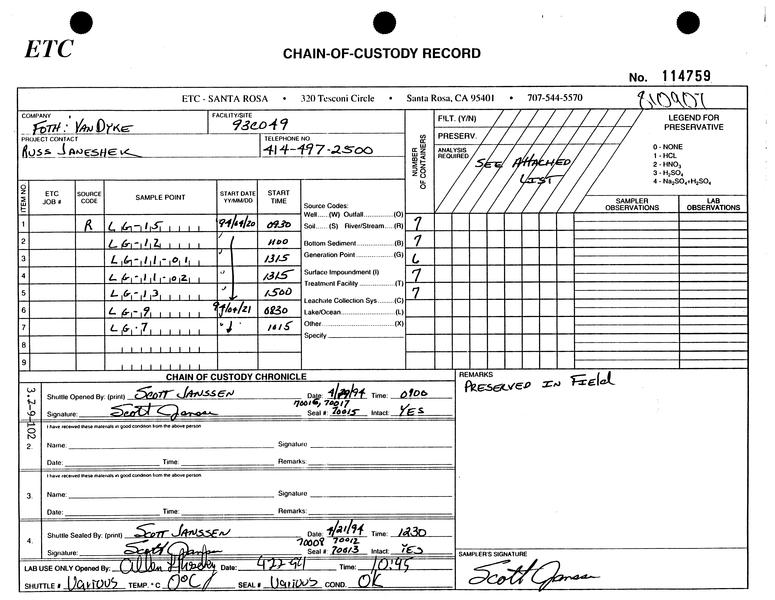 ETC
CHAIN-OF-CUSTODY RECORD
No. 114759
ETC - SANTA ROSA • 320 Tesconi Circle • Santa Rosa, CA 95401 • 707-544-5570
810907
COMPANY
FOTH : VAN DYKE
FACILITY/SITE
93C049
PROJECT CONTACT
RUSS JANESHEK
TELEPHONE NO
414-497-2500
NUMBER OF CONTAINERS
FILT. (Y/N)
PRESERV.
ANALYSIS REQUIRED
SEE ATTACHED LIST
LEGEND FOR PRESERVATIVE
0 - NONE
1 - HCL
2 - HNO3
3 - H2SO4
4 - Na2SO4+H2SO4
ITEM NO. ETC JOB # SOURCE CODE SAMPLE POINT START DATE YY/MM/DD START TIME
SAMPLER OBSERVATIONS LAB OBSERVATIONS
Source Codes:
Well......(W) Outfall............(O)
Soil......(S) River/Stream...(R)
Bottom Sediment...............(B)
Generation Point...............(G)
Surface Impoundment (I)
Treatment Facility...............(T)
Leachate Collection Sys....(C)
Lake/Ocean........................(L)
Other..................................(X)
Specify
1 R LG-15 94/04/20 0930 7
2 LG-12 " 1100 7
3 LG-11-01 1315 6
4 LG-11-02 " 1315 7
5 LG-13 " 1500 7
6 LG-9 94/04/21 0830
7 LG-7 " 1015
8
9
CHAIN OF CUSTODY CHRONICLE
REMARKS
PRESERVED IN FIELD
3.2-9-102
Shuttle Opened By: (print) SCOTT JANSSEN Date: 4/20/94 Time: 0900
70016, 70017
Signature: Scott Janssen Seal #: 70015 Intact: YES
I have received these materials in good condition from the above person
2. Name: Signature
Date: Time: Remarks:
I have received these materials in good condition from the above person
3. Name: Signature
Date: Time: Remarks:
4. Shuttle Sealed By: (print) SCOTT JANSSEN Date: 4/21/94 Time: 1230
70008 70012
Signature: Scott Janssen Seal #: 70013 Intact: YES
LAB USE ONLY Opened By: Allan Date: 4-22-94 Time: 10:45
SHUTTLE # Various TEMP. °C 0°C SEAL # Various COND. OK
SAMPLER'S SIGNATURE
Scott Janssen